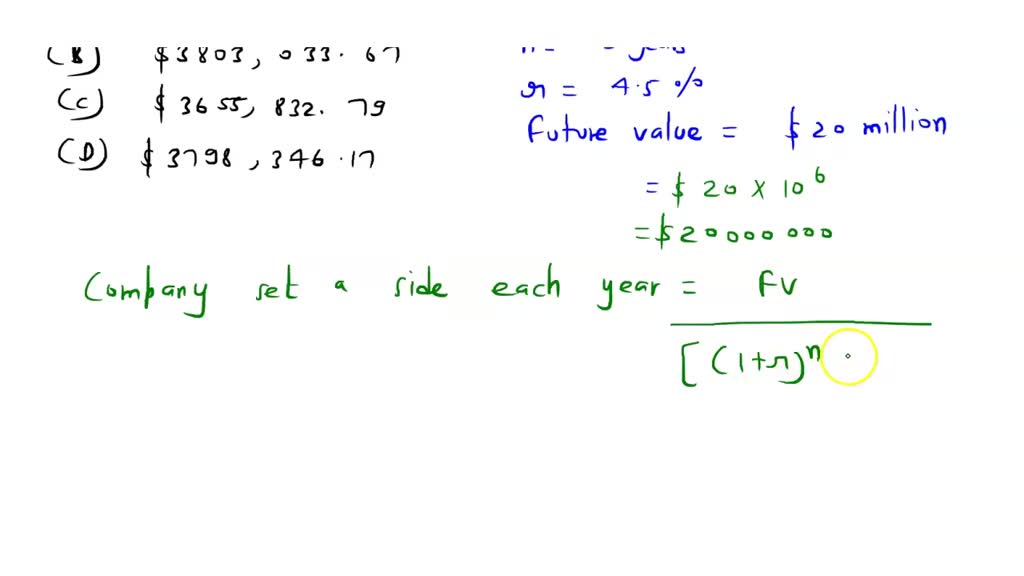 (B) $3803, 033. 67
(C) $ 3655, 832. 79
(D) $ 3798, 346.17
r = 4.5 %
Future value = $ 20 million
= $ 20 X 10^6
= $20000000
Company set a side each year = FV
[(1+r)^n